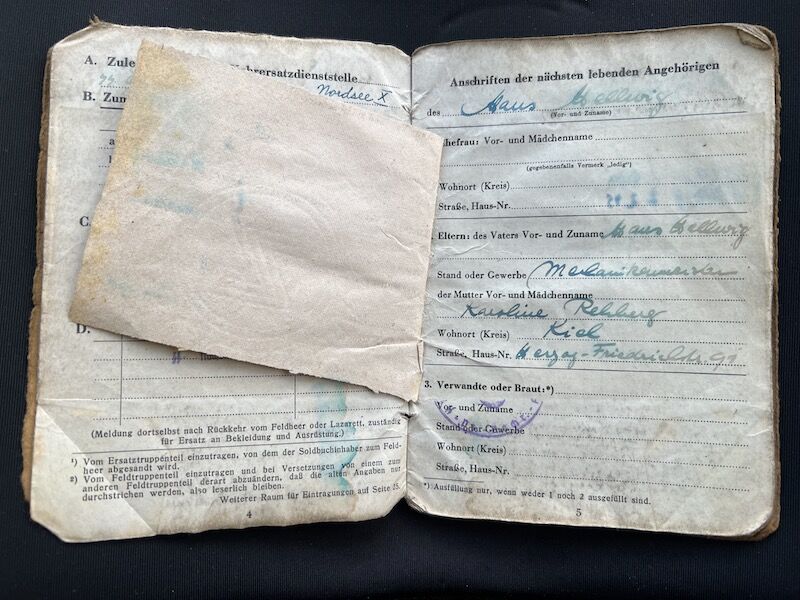 A. Zule
Wehrersatzdienststelle
Nordsee X
B. Zum
C.
D.
(Meldung dortselbst nach Rückkehr vom Feldheer oder Lazarett, zuständig
für Ersatz an Bekleidung und Ausrüstung.)
¹) Vom Ersatztruppenteil einzutragen, von dem der Soldbuchinhaber zum Feld-
heer abgesandt wird.
²) Vom Feldtruppenteil einzutragen und bei Versetzungen von einem zum
anderen Feldtruppenteil derart abzuändern, daß die alten Angaben nur
durchstrichen werden, also leserlich bleiben.
Weiterer Raum für Eintragungen auf Seite 25.
4
Anschriften der nächsten lebenden Angehörigen
des Hans Hellwig
(Vor- und Zuname)
Ehefrau: Vor- und Mädchenname
(gegebenenfalls Vermerk „ledig")
Wohnort (Kreis)
Straße, Haus-Nr.
Eltern: des Vaters Vor- und Zuname Hans Hellwig
Stand oder Gewerbe Mechanikermeister
der Mutter Vor- und Mädchenname
Karoline Rehberg
Wohnort (Kreis) Kiel
Straße, Haus-Nr. Herzog-Friedrichstr. 91
3. Verwandte oder Braut:*)
Vor- und Zuname
Stand oder Gewerbe
Wohnort (Kreis)
Straße, Haus-Nr.
*) Ausfüllung nur, wenn weder 1 noch 2 ausgefüllt sind.
5